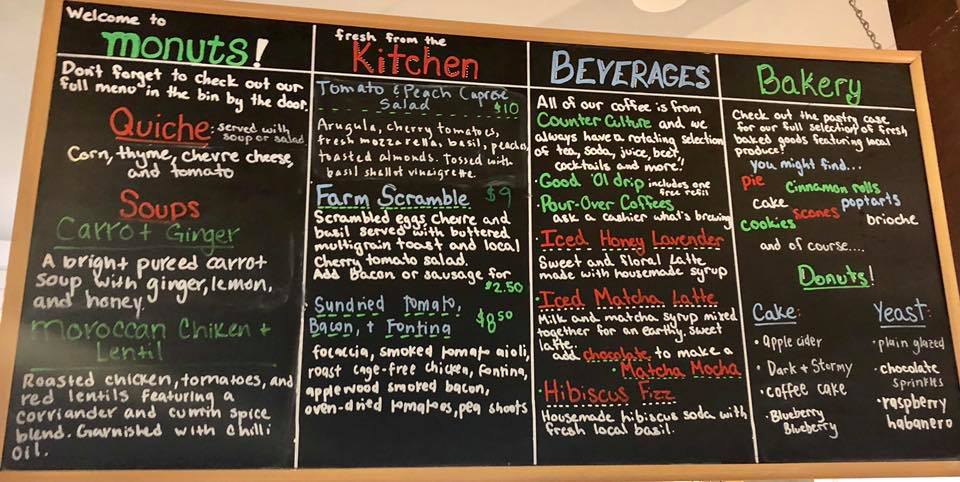 Welcome to
monuts!
Don't forget to check out our
full menu in the bin by the door.
Quiche: served with
soup or salad
Corn, thyme, chevre cheese,
and tomato
Soups
Carrot Ginger
A bright pureed carrot
soup with ginger, lemon,
and honey.
Moroccan Chiken +
Lentil
Roasted chicken, tomatoes, and
red lentils featuring a
corriander and cumin spice
blend. Garnished with chilli
oil.
fresh from the
Kitchen
Tomato & Peach Caprese
Salad $10
Arugula, cherry tomatoes,
fresh mozzarella, basil, peaches
toasted almonds. Tossed with
basil shallot vinaigrette.
Farm Scramble $9
Scrambled eggs, chevre and
basil served with buttered
multigrain toast and local
cherry tomato salad.
Add bacon or sausage for
$2.50
Sundried tomato, $8.50
Bacon, + Fontina
focaccia, smoked tomato aioli,
roast cage-free chicken, fontina,
applewood smoked bacon,
oven-dried tomatoes, pea shoots
BEVERAGES
All of our coffee is from
Counter Culture and we
always have a rotating selection
of tea, soda, juice, beer,
cocktails and more!
• Good 'Ol drip includes one
free refil
• Pour-Over Coffees
ask a cashier what's brewing
• Iced Honey Lavender
Sweet and floral latte
made with housemade syrup
• Iced Matcha Latte
Milk and matcha syrup mixed
together for an earthy, sweet
latte.
add chocolate to make a
• Matcha Mocha
• Hibiscus Fizz
Housemade hibiscus soda with
fresh local basil.
Bakery
Check out the pastry case
for our full selection of fresh
baked goods featuring local
produce!
you might find...
pie cinnamon rolls
cake poptarts
cookies scones brioche
and of course....
Donuts!
Cake:
• apple cider
• Dark + Stormy
• coffee cake
• Blueberry
Blueberry
Yeast:
• plain glazed
• chocolate
sprinkles
• raspberry
habanero